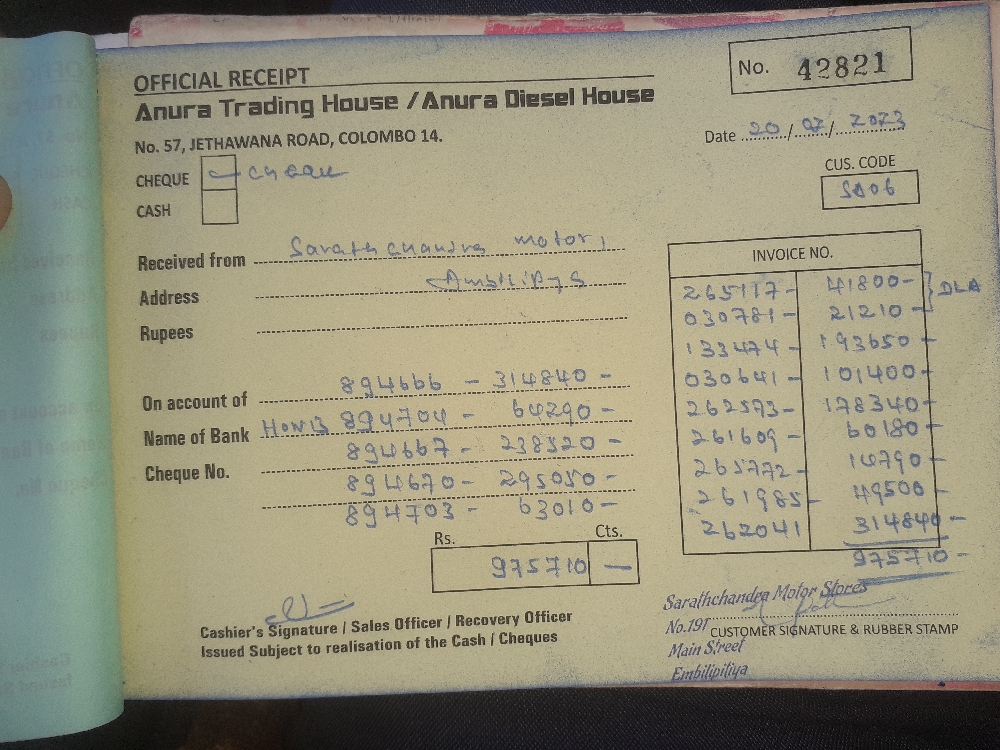 OFFICIAL RECEIPT
Anura Trading House / Anura Diesel House
No. 57, JETHAWANA ROAD, COLOMBO 14.
No. 42821
Date 20/07/2023
CHEQUE
CASH
CUS. CODE
SA06
Received from Sarath chandra motors
Address
Rupees
On account of 894666 - 314840 -
Name of Bank HONB 894704 - 64290 -
Cheque No. 894667 - 238520 -
894670 - 295050 -
894703 - 63010 -
Rs. Cts.
975710 -
INVOICE NO.
265117 - 41800 -
030781 - 21210 - } DLA
133474 - 193650 -
030641 - 101400 -
262573 - 178340 -
261609 - 60180 -
265772 - 14790 -
261985 - 49500 -
262041 314840 -
975710 -
Cashier's Signature / Sales Officer / Recovery Officer
Issued Subject to realisation of the Cash / Cheques
Sarathchandra Motor Stores
No.191
CUSTOMER SIGNATURE & RUBBER STAMP
Main Street
Embilipitiya